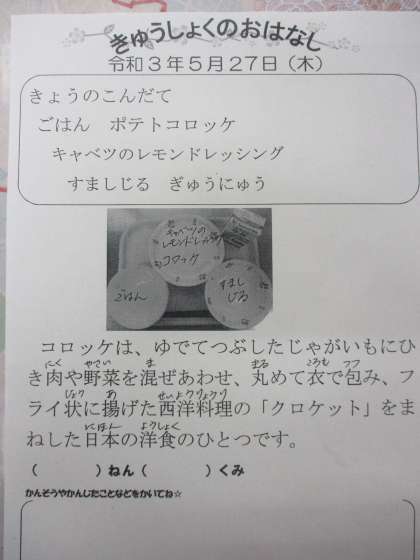 きゅうしょくのおはなし
令和3年5月27日（木）
きょうのこんだて
ごはん　ポテトコロッケ
キャベツのレモンドレッシング
すましじる　ぎゅうにゅう
キャベツの
レモンドレッシング
コロッケ
ごはん
すまし
じる
コロッケは、ゆでてつぶしたじゃがいもにひ
にく　やさい　ま　まる　ころも　つつ
き肉や野菜を混ぜあわせ、丸めて衣で包み、フ
じょう　あ　せいようりょうり
ライ状に揚げた西洋料理の「クロケット」をま
にほん　ようしょく
ねした日本の洋食のひとつです。
（　　　）ねん（　　　）くみ
かんそうやかんじたことなどをかいてね☆